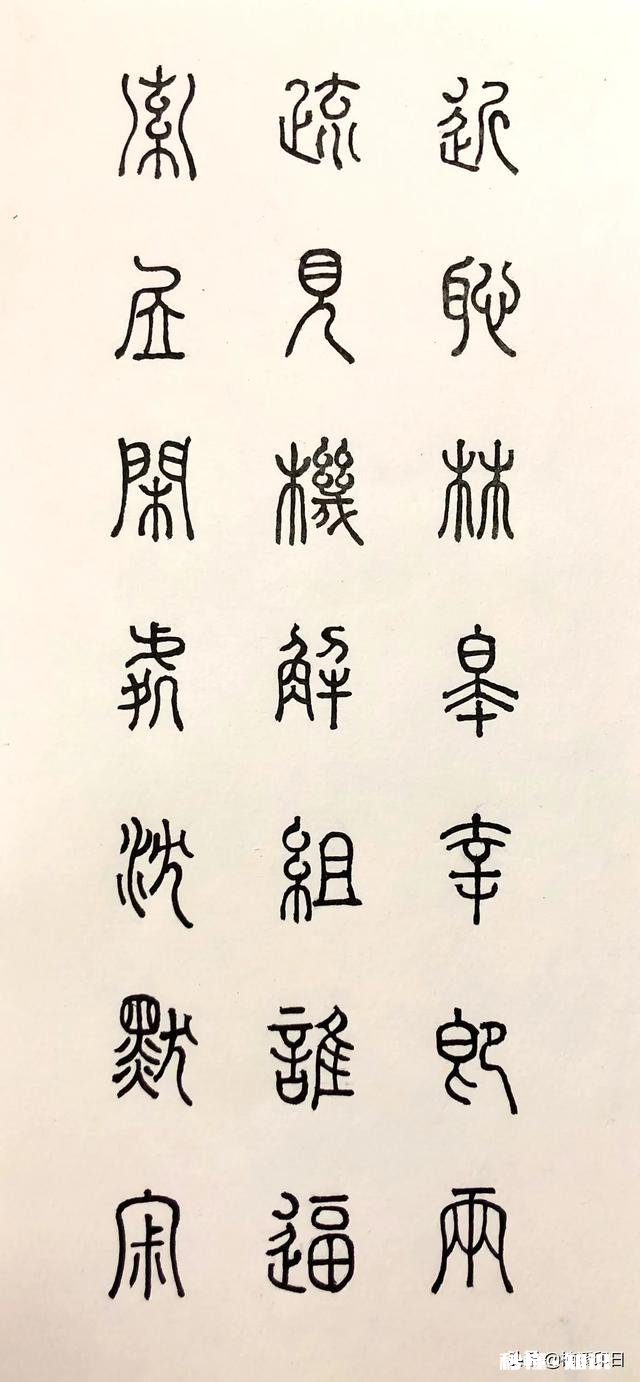 近恥林皋幸即兩
疏見機解組誰逼
索居閑處沈默寂